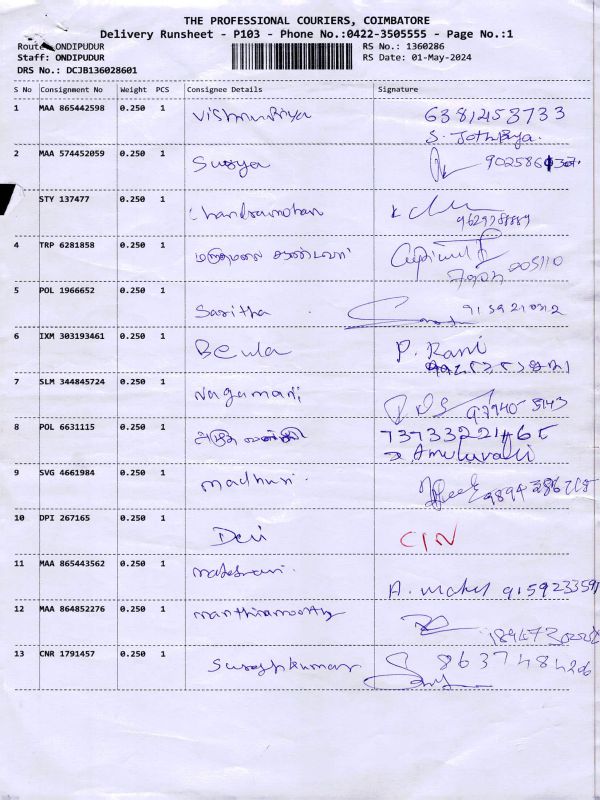 THE PROFESSIONAL COURIERS, COIMBATORE
Delivery Runsheet - P103 - Phone No.:0422-3505555 - Page No.:1
Route: ONDIPUDUR RS No.: 1360286
Staff: ONDIPUDUR RS Date: 01-May-2024
DRS No.: DCJB136028601
S No Consignment No Weight PCS Consignee Details Signature
1 MAA 865442598 0.250 1 6381453733
S. Jothi Priya.
2 MAA 574452059 0.250 1 Surya
STY 137477 0.250 1 Chandramohan
4 TRP 6281858 0.250 1
5 POL 1966652 0.250 1 Saritha
6 IXM 303193461 0.250 1 Beula P. Rani
7 SLM 344845724 0.250 1 Nagamani
8 POL 6631115 0.250 1
Amutuvalli
9 SVG 4661984 0.250 1 madhuri.
10 DPI 267165 0.250 1 Devi CIN
11 MAA 865443562 0.250 1 maheswari.
12 MAA 864852276 0.250 1 manthiramoorthy
13 CNR 1791457 0.250 1 Sureshkumar